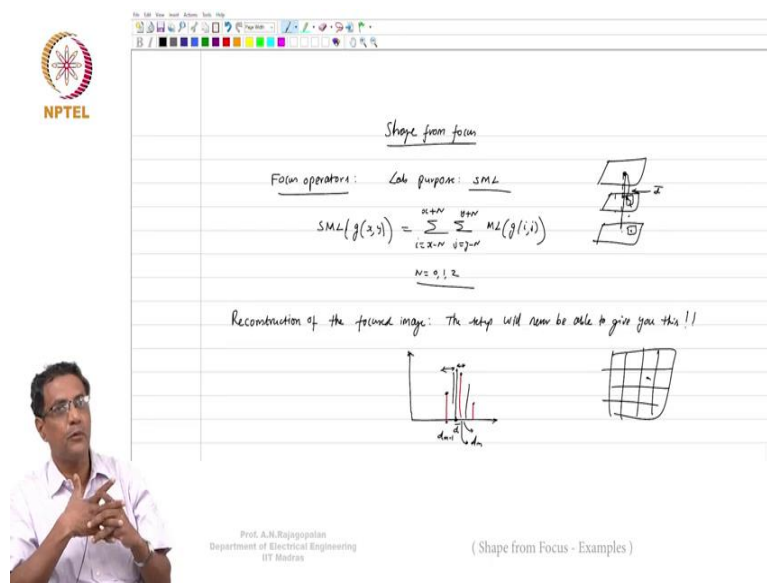 File Edit View Insert Actions Tools Help
NPTEL
Page Width
B I
Shape from focus
Focus operators: Lab purpose: SML
SML(g(x,y)) = x+N Σ i=x-N y+N Σ j=y-N ML(g(i,j))
N=0,1,2
d̄
Reconstruction of the focused image: The setup will never be able to give you this!!
d̄
dm-1
dm
Prof. A.N.Rajagopalan
Department of Electrical Engineering
IIT Madras
( Shape from Focus - Examples )